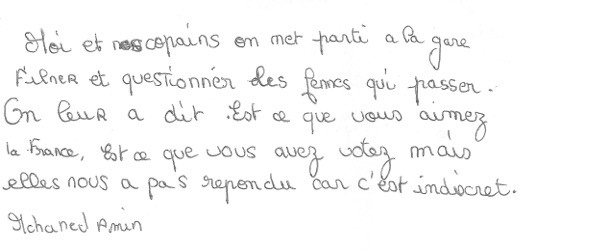 Moi et nos copains on met parti a la gare
Filner et questionner des femmes qui passer.
On leur a dit. Est ce que vous aimez
la France, Est ce que vous avez votez mais
elles nous a pas repondu car c'est indiscret.
Mohamed Amin